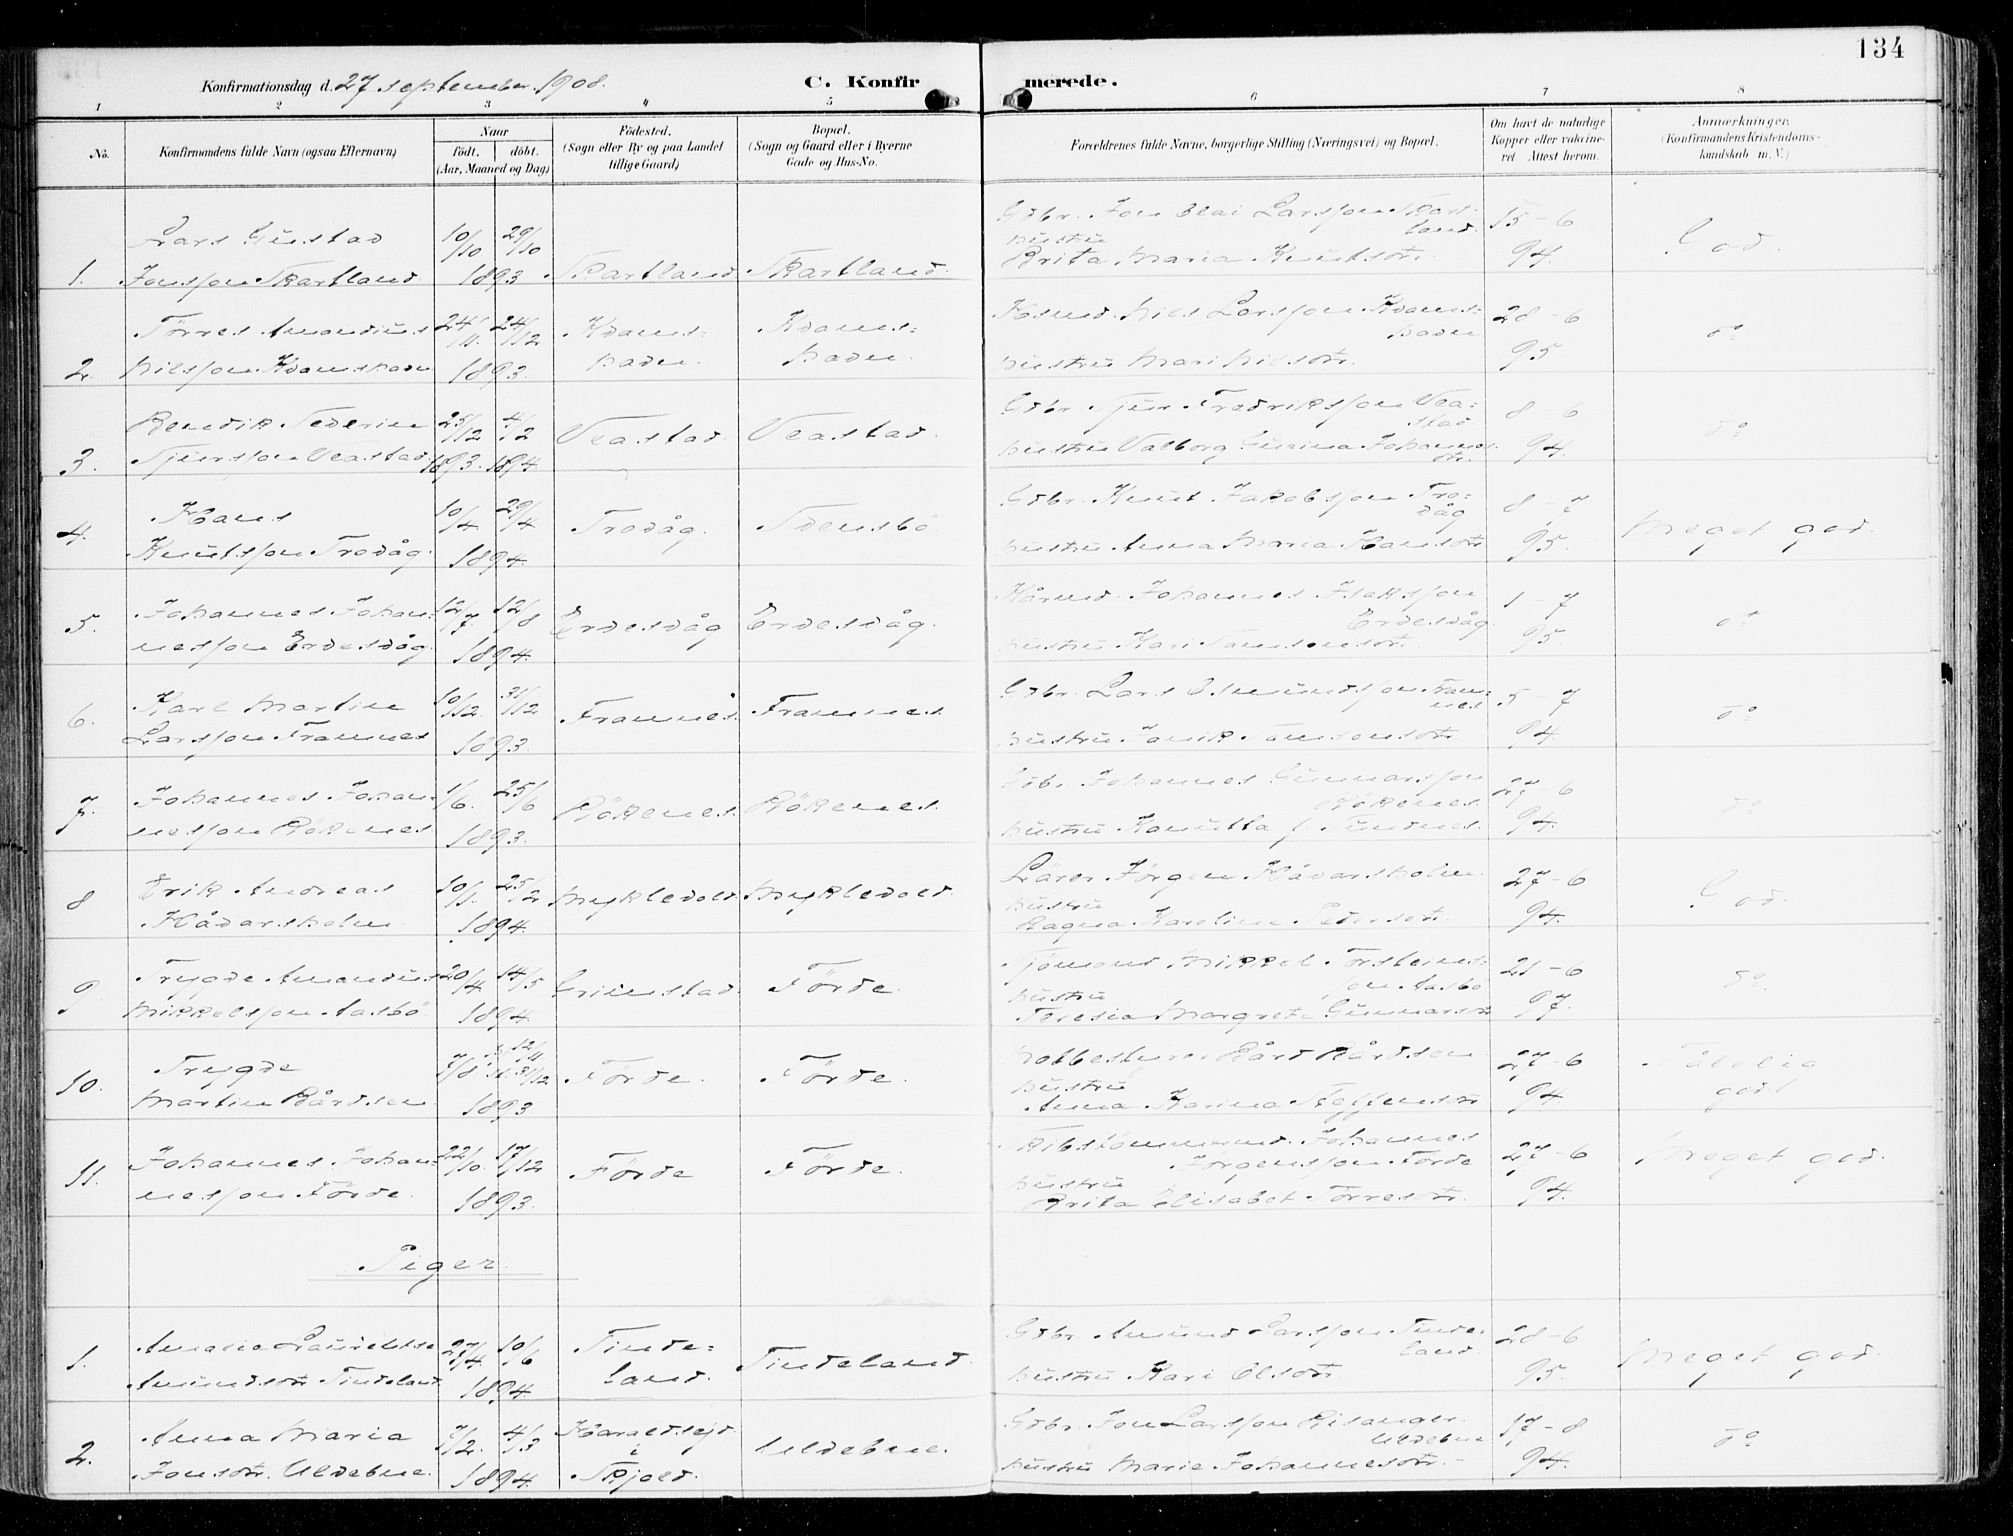 134
Konfirmationsdag d. 27 september 1908.
C. Konfir merede.
1 2 3 4 5 6 7 8
No.
Konfirmandens fulde Navn (ogsaa Efternavn)
Naar
født. døbt.
(Aar, Maaned og Dag)
Fødested.
(Sogn eller By og paa Landet
tillige Gaard)
Bopæl.
(Sogn og Gaard eller i Byerne
Gade og Hus-No.
Forældrenes fulde Navne, borgerlige Stilling (Næringsvei) og Bopæl.
Om havt de naturlige
Kopper eller vakcine-
ret Attest herom.
Anmærkninger.
(Konfirmandens Kristendoms-
kundskab m. V.)
1. Lars Gustad
Jonsson Skartland
10/10 29/10
1893
Skartland Skartland
Gdbr. Jon Olai Larsson Skart-
land.
hustru
Brita Maria Knutsdtr.
15-6
94.
God.
2. Tørres Amandius
Nilsson Kvamshavn
24/11. 24/12
1893.
Kvams-
havn.
Kvams-
havn.
Husmd. Nils Larsson Kvams-
havn
hustru Mari Nilsdtr.
28-6
95
do
3. Bendik Severin
Sjursson Veastad.
25/12 4/2
1893. 1894.
Veastad. Veastad.
Gdbr. Sjur Fredriksson Vea-
stad.
hustru Valborg Gurina Johannes
dtr.
8-6
94.
do
4. Hans
Knutsson Trovåg.
10/4 29/4
1894.
Trovåg. Svensbö
Gdbr. Knut Jakobsson Tro-
våg
hustru Anna Maria Hansdtr
8-7
95.
Meget god.
5. Johannes Johan-
nesson Erdesvåg.
12/7. 12/8
1894.
Erdesvåg Erdesvåg.
Hårmd. Johannes Isaksson
Erdesvåg.
hustru Kari Samsonsdtr.
1-7
95.
do
6. Karl Martin
Larsson Framnes
10/12. 31/12
1893.
Framnes. Framnes.
Gdbr. Lars Osmundsson Fram-
nes
hustru Janik Samsonsdtr.
5-7
94.
do
7. Johannes Johan-
nesson Rökenes
1/6. 25/6
1893.
Rökenes. Rökenes.
Gdbr. Johannes Gunnarsson
Rökenes
hustru Kanutta f. Tindnes.
27-6
94.
do
8 Erik Andreas
Håvarsholm.
10/1. 25/2
1894.
Myklevold. Myklevold
Lärer Jörgen Håvarsholm.
hustru
Ragna Karoline Pedersdtr.
27-6
94.
God.
9 Trygve Amandus
Mikkelsson Aasbö.
20/4 14/5
1894.
Grimstad. Förde.
Sjömand Mikkel Torsteins-
son Aasbö
hustru
Teresia Margrete Gunnarsdtr
21-6
97.
do.
10. Trygve
Martin Bårdsen.
7/8 12/11 31/12
1893
Förde. Förde.
Notbestyrer Bård Bårdsen
hustru
Anna Karina Steffensdtr.
27-6
94
Tålelig
godt
11. Johannes Johan-
nesson Förde.
22/10. 17/12
1893.
Förde Förde.
Skibstömmermd. Johannes
Jörgensson Förde
hustru
Brita Elisabet Törresdtr.
27-6
94.
Meget god.
Piger.
1. Amalie Lauretse
Amundsdtr. Tindeland.
27/4 10/6
1894.
Tinde-
land.
Tindeland.
Gdbr. Amund Larsson Tinde-
land
hustru Kari Olsdtr.
28-6
95.
Meget god.
2. Anna Maria
Jonsdtr. Uldebue.
7/2. 4/3
1894
Haraldsejd
i
Skjold.
Uldebue.
Gdbr. Jon Larsson Risanger.
Uldebue
hustru Marie Johannesdtr.
17-8
94.
do